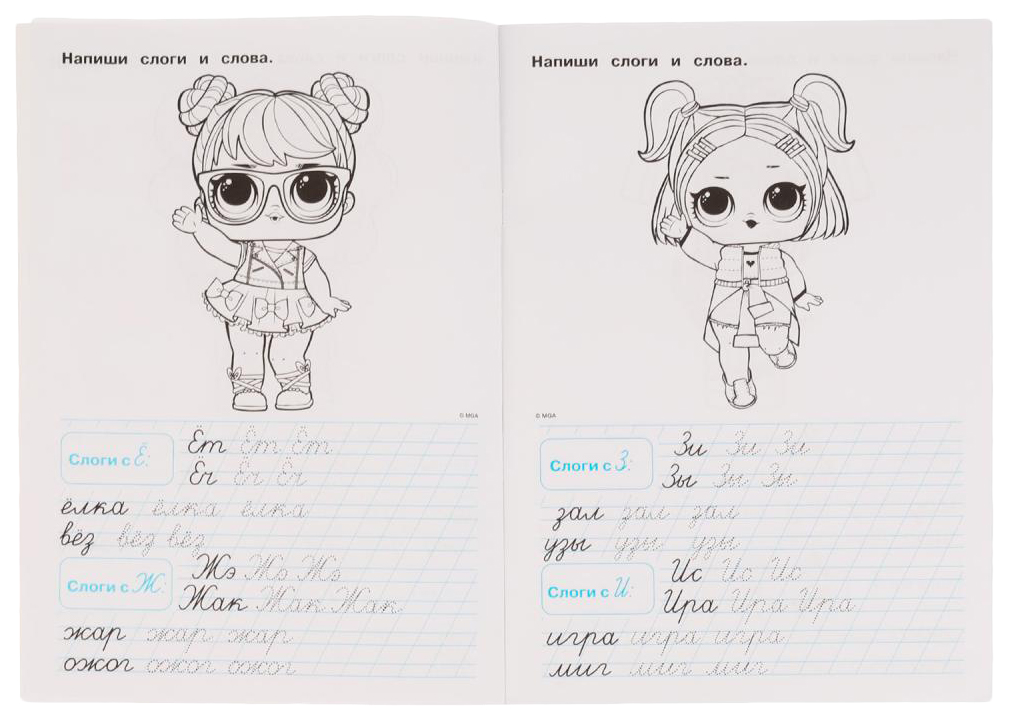 Напиши слоги и слова.
© MGA
Слоги с Ё:
Ёт Ёт Ёт
Ёг Ёг Ёг
ёлка ёлка ёлка
вёз вёз вёз
Слоги с Ж:
Жэ Жэ Жэ
Жак Жак Жак
жар жар жар
ожог ожог ожог
Напиши слоги и слова.
© MGA
Слоги с З:
Зи Зи Зи
Зы Зы Зы
зал зал зал
узы узы узы
Слоги с И:
Ис Ис Ис
Ира Ира Ира
игра игра игра
миг миг миг